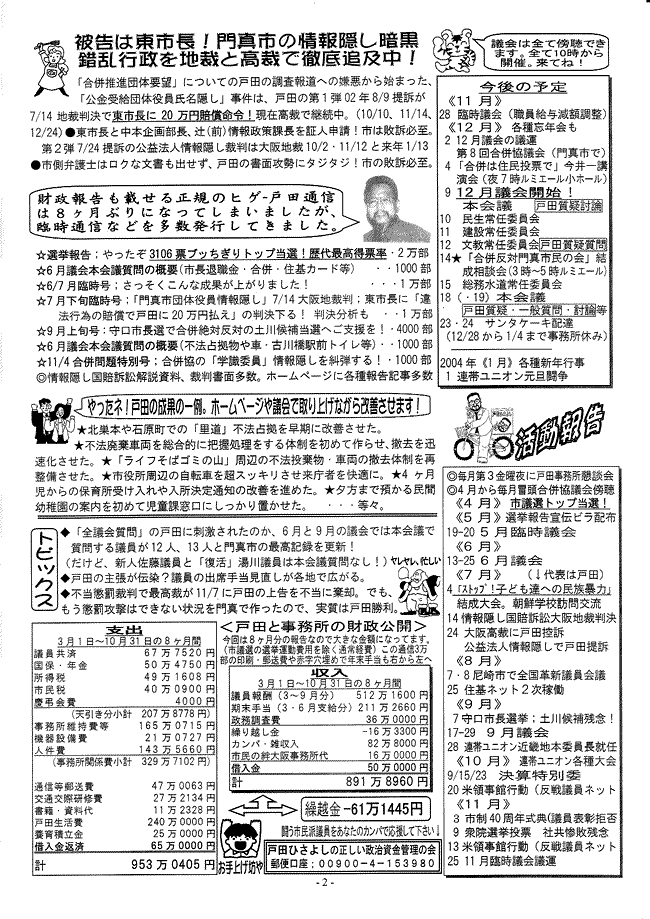 被告は東市長！門真市の情報隠し暗黒
錯乱行政を地裁と高裁で徹底追及中！
「合併推進団体要望」についての戸田の調査報道への嫌悪から始まった、
「公金受給団体役員氏名隠し」事件は、戸田の第1弾02年8/9提訴が
7/14地裁判決で東市長に20万円賠償命令！現在高裁で継続中。（10/10、11/14、
12/24）●東市長と中本企画部長、辻（前）情報政策課長を証人申請！市は敗訴必至。
第2弾7/24提訴の公益法人情報隠し裁判は大阪地裁10/2・11/12と来年1/13
●市側弁護士はロクな文書も出せず、戸田の書面攻勢にタジタジ！市の敗訴必至。
財政報告も載せる正規のヒゲ-戸田通信
は8ヶ月ぶりになってしまいましたが、
臨時通信などを多数発行してきました。
☆選挙報告；やったぞ3106票ブッちぎりトップ当選！歴代最高得票率・2万部
☆6月議会本会議質問の概要（市長退職金・合併・住基カード等）・・1000部
☆6/7月臨時号；さっそくこんな成果が上がりました！・・・1万部
☆7月下旬臨時号；「門真市団体役員情報隠し」7/14大阪地裁判；東市長に「違
法行為の賠償で戸田に20万円払え」の判決下る！ 判決分析も ・・1万部
☆9月上旬号：守口市長選で合併絶対反対の土川候補当選へご支援を！・4000部
☆6月議会本会議質問の概要（不法占拠物や車・古川橋駅前トイレ等）・・1000部
☆11/4合併問題特別号；合併協の「学識委員」情報隠しを糾弾する！・1000部
◎情報隠し国賠訴訟解説資料、裁判書面多数。ホームページに各種報告記事多数
やったネ！戸田の成果の一例。ホームページや議会で取り上げながら改善させます！
★北巣本や石原町での「里道」不法占拠を早期に改善させた。
★不法廃棄車両を総合的に把握処理をする体制を初めて作らせ、撤去を迅
速化させた。★「ライフそばゴミの山」周辺の不法投棄物・車両の撤去体制を再
整備させた。★市役所周辺の自転車を超スッキリさせ来庁者を快適に。★4ヶ月
児からの保育所受け入れや入所決定通知の改善を進めた。★夕方まで預かる民間
幼稚園の案内を初めて児童課窓口にしっかり置かせた。 ・・・等々。
トピックス
◆「全議会質問」の戸田に刺激されたのか、6月と9月の議会では本会議で
質問する議員が12人、13人と門真市の最高記録を更新！
（だけど、新人佐藤議員と「復活」湯川議員は本会議質問なし！）
ヤレヤレ、忙しい
◆戸田の主張が伝染？議員の出席手当見直しが各地で広がる。
◆不当懲罰裁判で最高裁が11/7に戸田の上告を不当に棄却。でも、
もう懲罰攻撃はできない状況を門真で作ったので、実質は戸田勝利。
支出
3月1日～10月31日の8ヶ月間
議員共済 67万7520円
国保・年金 50万4750円
所得税 49万1608円
市民税 40万0900円
慶弔会費 4000円
（天引き分小計 207万8778円）
事務所維持費等 165万0715円
機器設備費 21万0727円
人件費 143万5660円
（事務所関係費小計 329万7102円）
通信等郵送費 47万0063円
交通交際研修費 27万2134円
書籍・資料代 11万2328円
戸田生活費 240万0000円
養育積立金 25万0000円
借入金返済 65万0000円
計 953万0405円
＜戸田と事務所の財政公開＞
今回は8ヶ月分の報告なので大きな金額になってます。
（市議選の選挙運動費用を除く通常経費）この通信3万
部の印刷・郵送費や赤字穴埋めで年末手当も右から左へ
収入
3月1日～10月31日の8ヶ月間
議員報酬（3～9月分） 512万1600円
期末手当（3・6月支給分） 211万2660円
政務調査費 36万0000円
繰り越し金 -16万3300円
カンパ・雑収入 82万8000円
市民の絆大阪事務所代 16万0000円
借入金 50万0000円
計 891万8960円
繰越金 -61万1445円
闘う市民派議員をあなたのカンパで応援して下さい↓
お手上げ坊や
戸田ひさよしの正しい政治資金管理の会
郵便口座：00900-4-153980
議会は全て傍聴でき
ます。全て10時から
開催。来てね！
今後の予定
《11月》
28 臨時議会（職員給与減額調整）
《12月》各種忘年会も
2 12月議会の議運
第8回合併協議会（門真市で）
4「合併は住民投票で」今井一講
演会（夜7時ルミエール小ホール）
9 12月議会開始！
本会議 戸田質疑討論
10 民生常任委員会
11 建設常任委員会
12 文教常任委員会 戸田質疑質問
14★「合併反対門真市民の会」結
成相談会（3時～5時ルミエール）
15 総務水道常任委員会
18（・19）本会議
戸田質疑・一般質問・討論等
23・24 サンタケーキ配達
（12/28から1/4まで事務所休み）
2004年《1月》各種新年行事
1 連帯ユニオン元旦闘争
活動報告
◎毎月第3金曜夜に戸田事務所懇談会
◎4月から毎月冒頭合併協議会傍聴
《4月》市議選トップ当選！
《5月》選挙報告宣伝ビラ配布
19-20 5月臨時議会
《6月》
13-25 6月議会
《7月》 （↓代表は戸田）
4「ストップ！子ども達への民族暴力」
結成大会。朝鮮学校訪問交流
14 情報隠し国賠訴訟大阪地裁判決
24 大阪高裁に戸田控訴
公益法人情報隠しで戸田提訴
《8月》
7・8 尼崎市で全国革新議員会議
25 住基ネット2次稼働
《9月》
7 守口市長選挙；土川候補残念！
17-29 9月議会
28 連帯ユニオン近畿地本委員長就任
《10月》連帯ユニオン各種大会
9/15/23 決算特別委
20 米領事館行動（反戦議員ネット
《11月》
3 市制40周年式典（議員表彰拒否
9 衆院選挙投票 社共惨敗残念
13 米領事館行動（反戦議員ネット
25 11月臨時議会議運
- 2 -